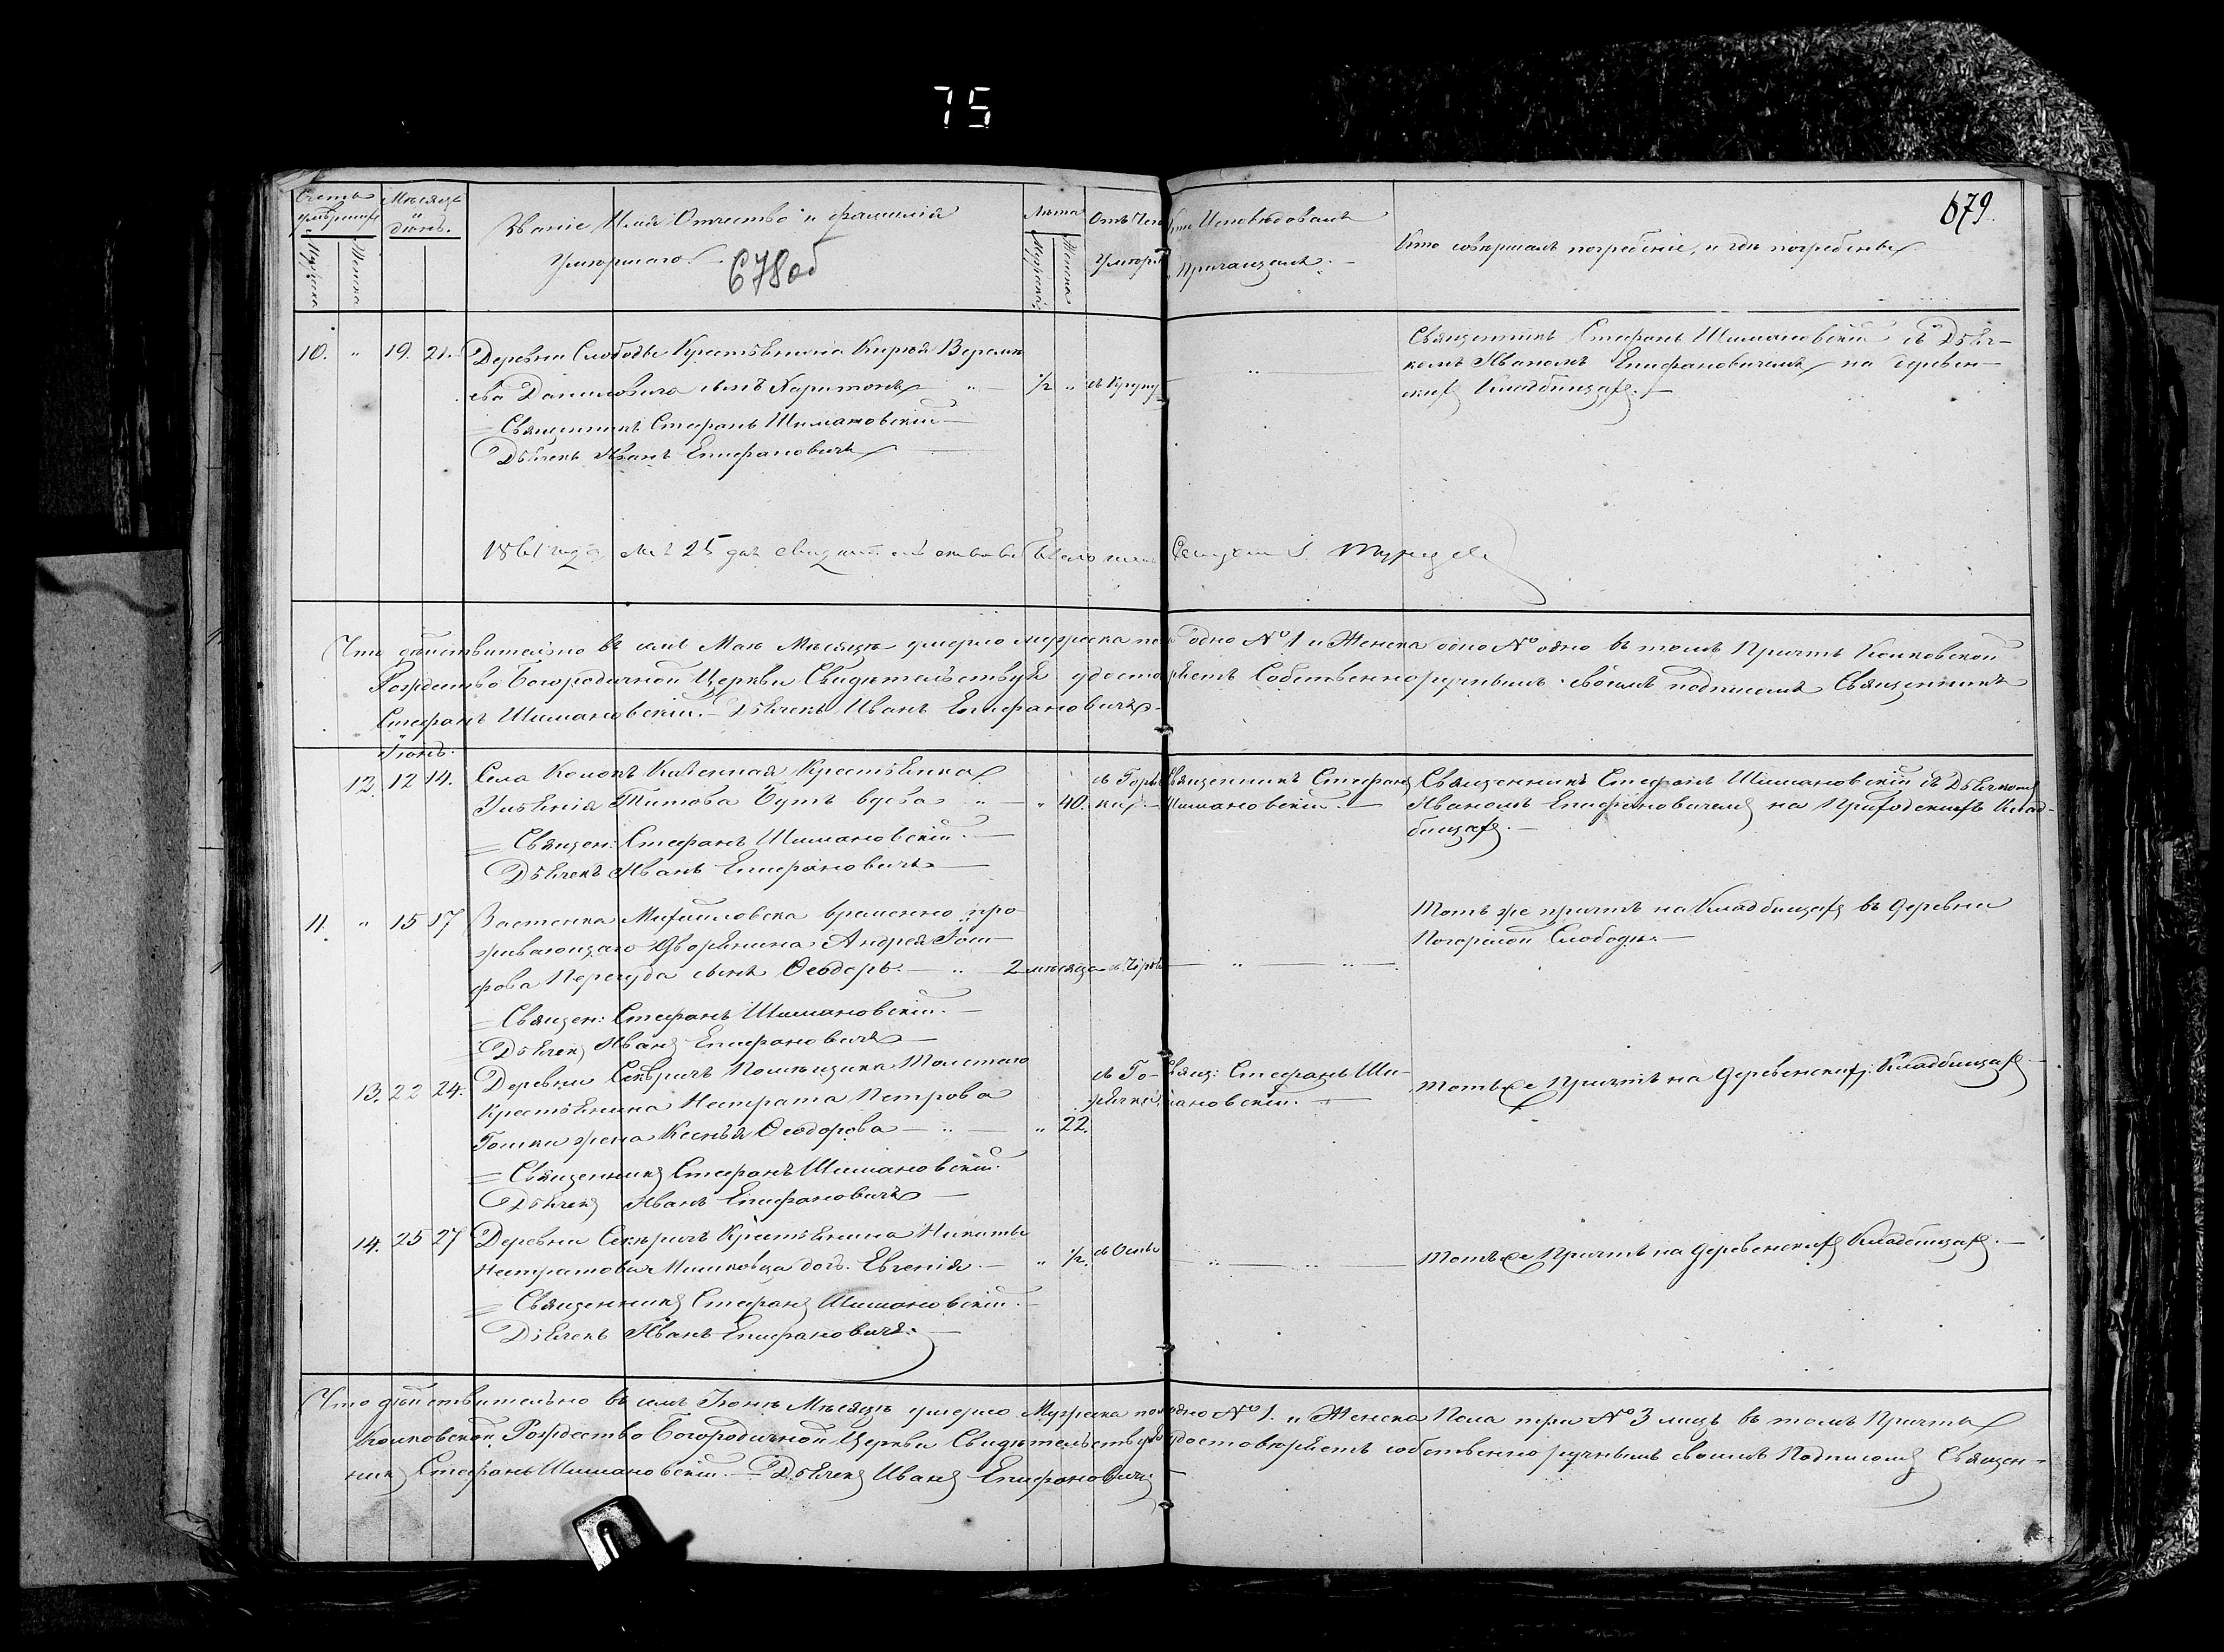 75
679.
Счетъ умершихъ
Мѣсяцъ и день.
Званіе Имя Отчество и фамилія
Умершаго.
678об
Лѣта
Отъ Чего
Умеръ
Кто Исповѣдовалъ
Причащалъ. —
Кто совершалъ погребеніе, и гдѣ погребены
Мужеска
Женска
Мужеска
Женска
10. " 19. 21. Деревни Слободы Крестьянина
Даниловича сынъ Харитонъ — " — 1/2 "
= Священникъ Стефанъ Шимановскій —
Дьячекъ Иванъ Епифановичъ —
— " —
Священникъ Стефанъ Шимановскій съ Дьяч-
комъ Иваномъ Епифановичемъ на деревен-
скихъ Кладбищахъ. —
25
Что дѣйствительно въ семъ Маѣ Мѣсяцѣ умерло мужеска пола одно № 1 и Женска одно № одно въ томъ Причтъ Колковской
Рождество Богородичной Церкви Свидѣтельствуя удостовѣряетъ Собственноручнымъ своимъ подписомъ Священникъ
Стефанъ Шимановскій. — Дьячекъ Иванъ Епифановичъ —
Іюнь.
12. 12 14. Села Колокъ Казенная Крестьянка
Ульянія Титова вдова " — " 40.
= Священ: Стефанъ Шимановскій. —
Дьячекъ Иванъ Епифановичъ —
съ Горяч
ки. —
Священникъ Стефанъ
Шимановскій. —
Священникъ Стефанъ Шимановскій съ Дьячкомъ
Иваномъ Епифановичемъ на Приходскихъ Клад-
бищахъ. —
11. " 15 17 Застенка Михайловска временно про-
живающаго Дворянина Андрея
Перегуда сынъ Ѳеодоръ. — " — 2 мѣсяца
= Священ: Стефанъ Шимановскій. —
= Дьячекъ Иванъ Епифановичъ —
— " — " —
Тотъ же причтъ на Кладбищахъ въ Деревни
Погорѣлой Слободѣ. —
13. 22 24. Деревни Секѣричъ Помѣщика Толстаго
Крестьянина Нестрата Петрова
жена Ксенья Ѳеодорова — " — " 22.
= Священникъ Стефанъ Шимановскій.
Дьячекъ Иванъ Епифановичъ —
съ Го-
рячки
Свящ: Стефанъ Ши-
мановскій. —
Тотъ же Причтъ на Деревенскихъ Кладбищахъ. —
14. 25 27 Деревни Секѣричъ Крестьянина Никиты
Нестратова дочь Евгенія. — " 1/2. съ Оспы
= Священникъ Стефанъ Шимановскій. —
Дьячекъ Иванъ Епифановичъ. —
— " — " —
Тотъ же Причтъ на Деревенскихъ Кладбищахъ. —
Что дѣйствительно въ семъ Іюнѣ Мѣсяцѣ умерло Мужеска пола одно № 1. и Женска Пола три № 3 лицъ въ томъ Причтъ
Колковской Рождество Богородичной Церкви Свидѣтельствуя удостовѣряетъ собственноручнымъ своимъ Подписомъ Священ-
никъ Стефанъ Шимановскій. — Дьячекъ Иванъ Епифановичъ